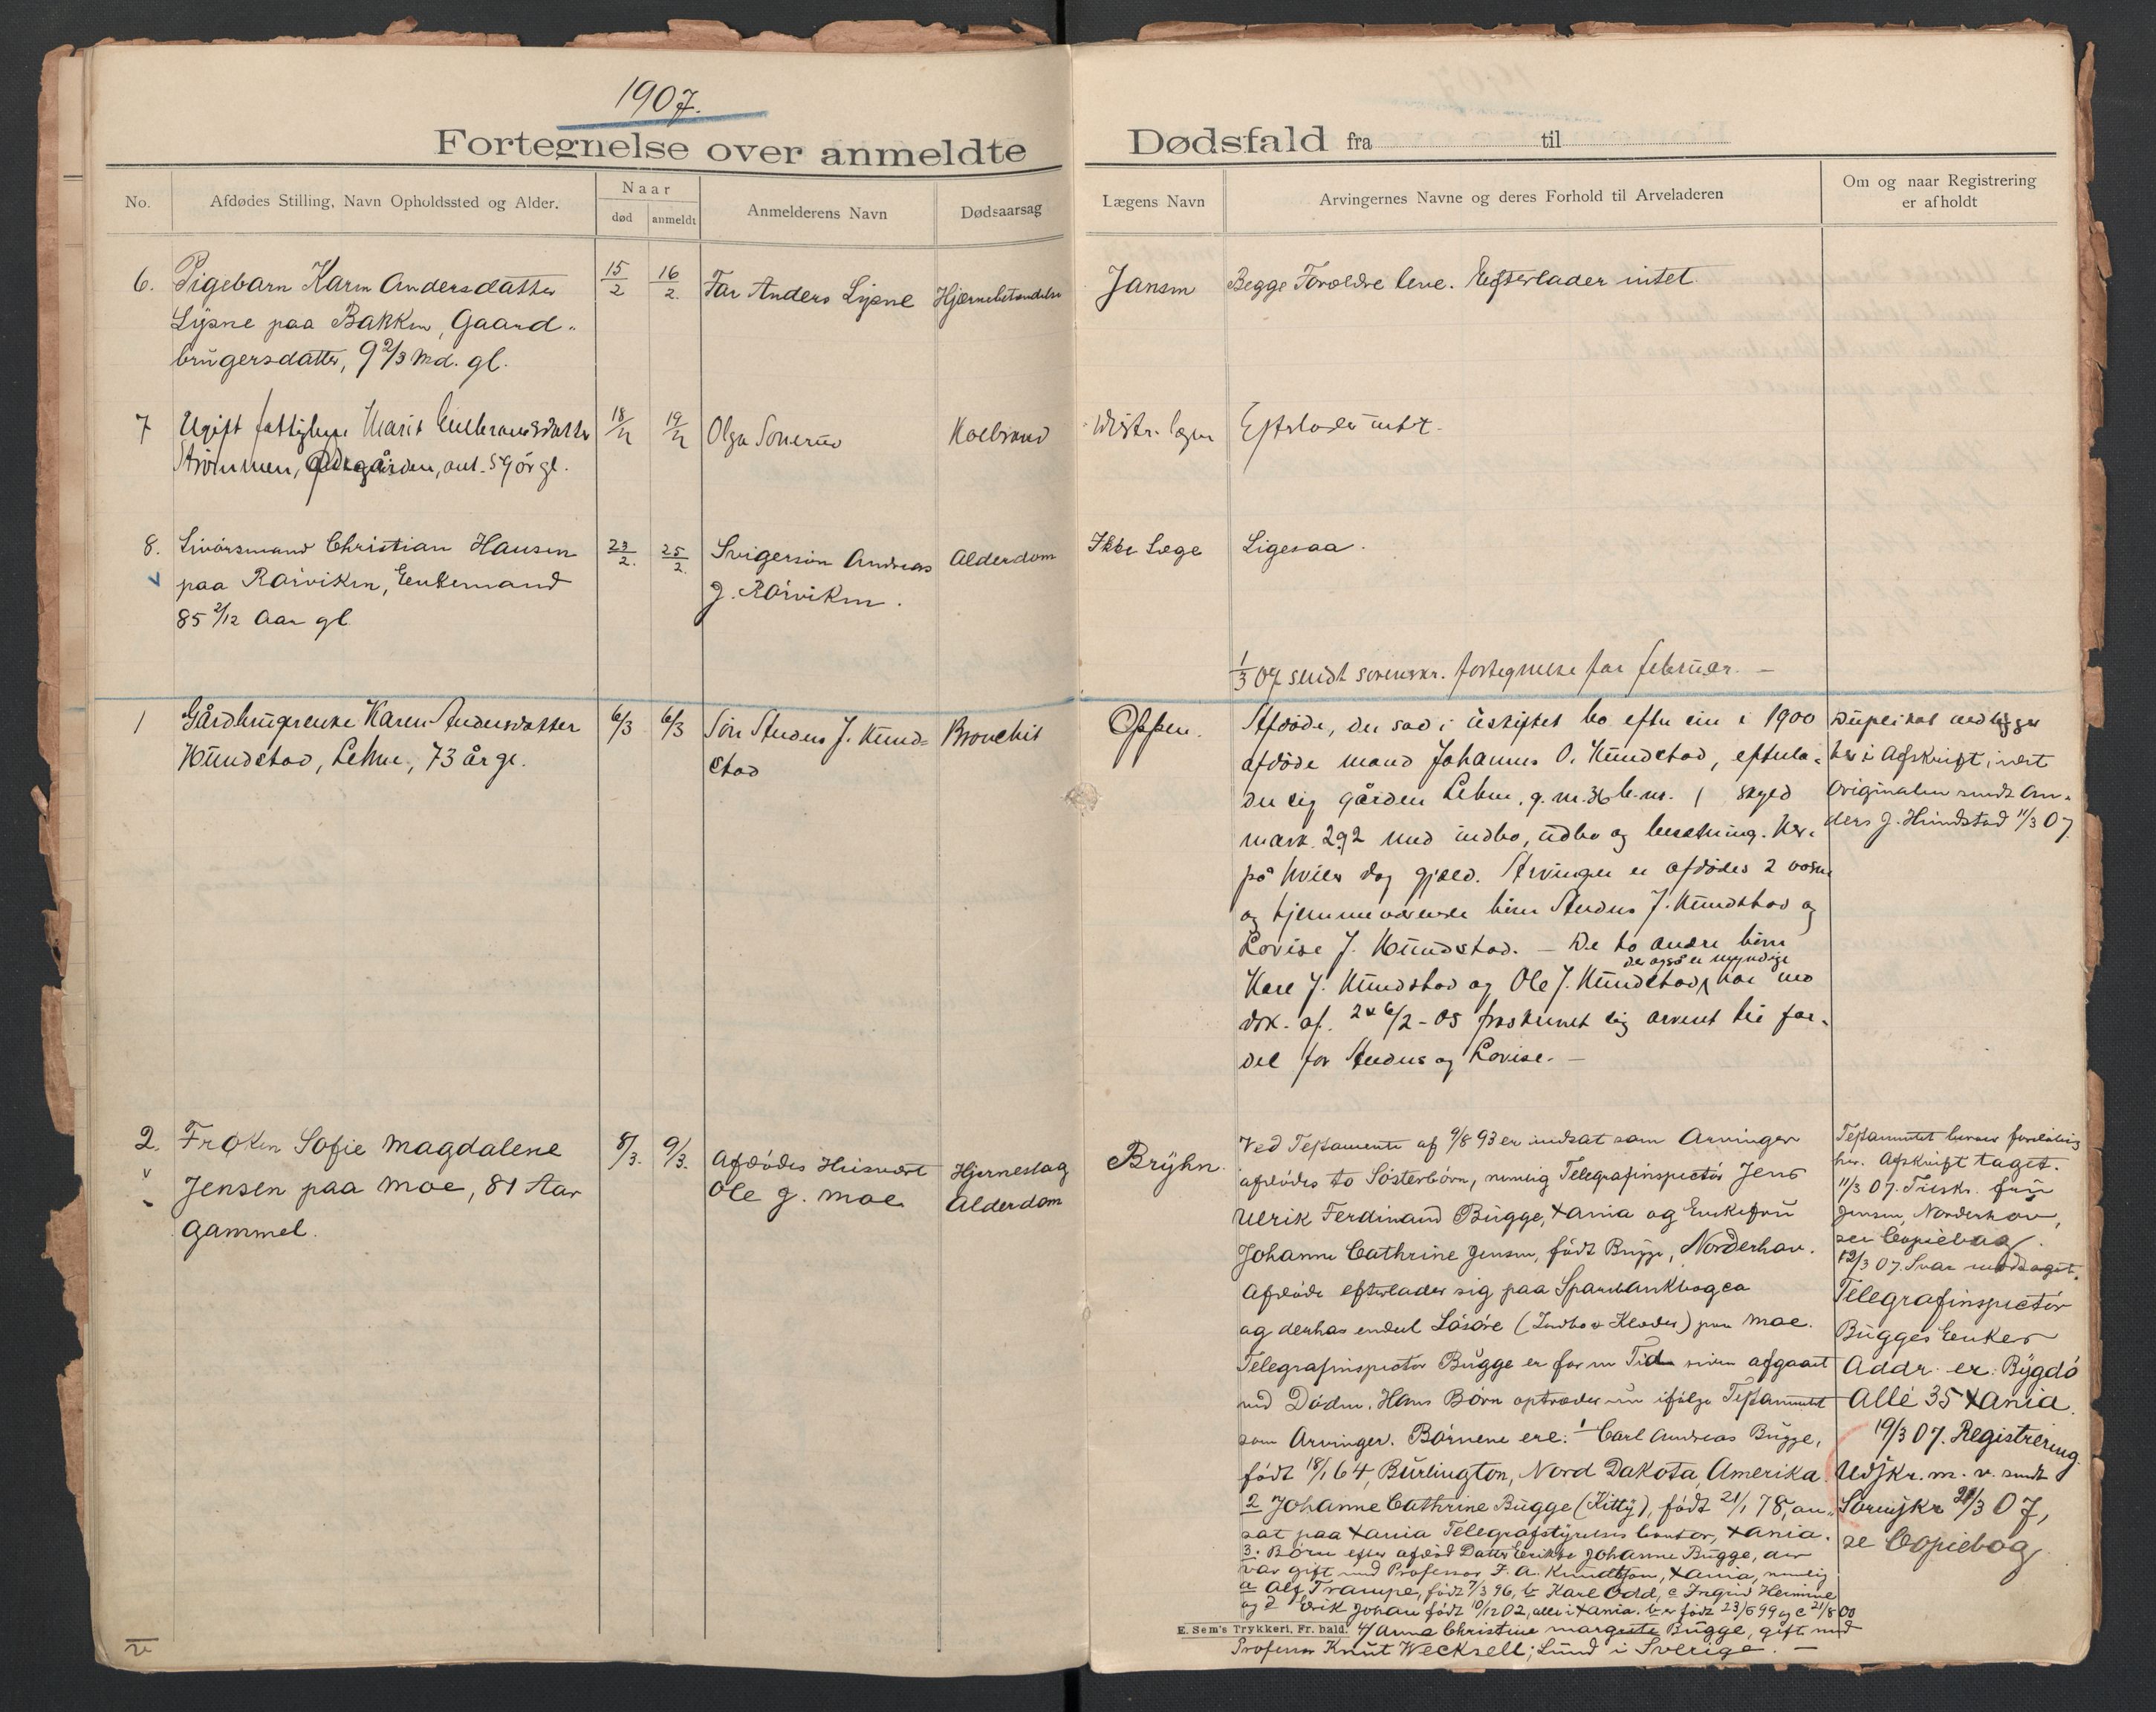 1907.
Fortegnelse over anmeldte Dødsfald fra til
No.
Afdødes Stilling, Navn Opholdssted og Alder.
Naar
død
anmeldt
Anmelderens Navn
Dødsaarsag
Lægens Navn
Arvingernes Navne og deres Forhold til Arveladeren
Om og naar Registrering
er afholdt
6. Pigebarn Karen Andersdatter
Lysne paa Bakken, Gaard-
brugersdatter, 9 2/3 Md. gl.
15/2 16/2. Far Anders Lysne Hjernebetændelse
Jansen Begge Forældre leve. Efterlader intet.
7 Ugift Marit
Strømmen, gl.
18/2 19/2 Olga Koldbrand
Distr. lægen Efterlader intet.
8. Livörsmand Christian Hansen
paa Rörviken, Enkemand
85 2/12 Aar gl
23/2. 25/2. Svigersön Andreas
J. Rörviken.
Alderdom
Ikke Læge Ligesaa.
1/3 07 sendt sorenskr. fortegnelse for februar. —
1 Gårdbrugerenke Karen Andersdatter
73 år gl.
6/3 6/3 Sön Anders J.
stad
Bronchit
Oppen. Afdøde, der sad i uskiftet bo efter sin i 1900
afdöde mand Johannes O. , efterla-
der sig gården g. nr. 36 b. nr. 1 skyld
mark 2,92 med indbo, udbo og besætning. Her-
på hviler dog gjæld. Arvinger er afdödes 2 voksne
og hjemmeværende börn Anders J. og
Lovise J. — De to andre börn
der også er myndige
J. og Ole J. har ved
dok. af 2 & 6/2 - 05 fraskrevet sig arveret til for-
del for Anders og Lovise. —
her i Afskrift, idet
Originalen sendt An-
ders J. Hundstad 11/3 07.
2. Frøken Sofie Magdalene
Jensen paa Moe, 81 Aar
gammel.
8/3. 9/3. Afdödes Husvært
Ole G. Moe
Hjerneslag
Alderdom
Bryhn. Ved Testamente af 9/8 93 er indsat som Arvinger
afdödes to Sösterbörn, nemlig Telegrafinspectör Jens
Ulrik Ferdinand Bugge, Xania og Enkefru
Johanne Cathrine Jensen, födt Bugge, Norderhov.
Afdöde efterlader sig paa Sparebankbog ca
og derhos endel Lösöre (Indbo & Klæder) paa Moe.
Telegrafinspectör Bugge er for en Tid siden afgaaet
ved Döden. Hans Börn optræder nu ifölge Testamentet
som Arvinger. Börnene ere: 1 Carl Andreas Bugge,
födt 18/1 64, Burlington, Nord Dakota, Amerika.
2 Johanne Cathrine Bugge (Kitty), födt 21/1 78, an-
sat paa Xania Telegrafstyrelses kontor, Xania.
3. Börn efter afdöd Datter Johanne Bugge, der
var gift med Professor F. A. Knudtson, Xania, nemlig
a Alf Trampe, födt 7/3 96, b Karl Odd, c Ingrid Hermine
og d Erik Johan födt 10/12 02, alle i Xania. b er födt 23/6 99 og c 21/8 00
4/ Anna Christine Margrete Bugge, gift med
Professor Knut Wecksell, Lund i Sverige. —
Testamentet beror foreløbig
her. Afskrift taget.
11/3 07. Tilskr. fru
Jensen, Norderhov,
se Copiebog.
12/3 07. Svar modtaget.
Telegrafinspectör
Bugges Enkes
Addr. er: Bygdö
Allé 35 Xania.
19/3 07. Registrering
Udskr. m. v. sendt
Sorenskr 21/3 07,
se Copiebog
E. Sem's Trykkeri, Fr. hald.